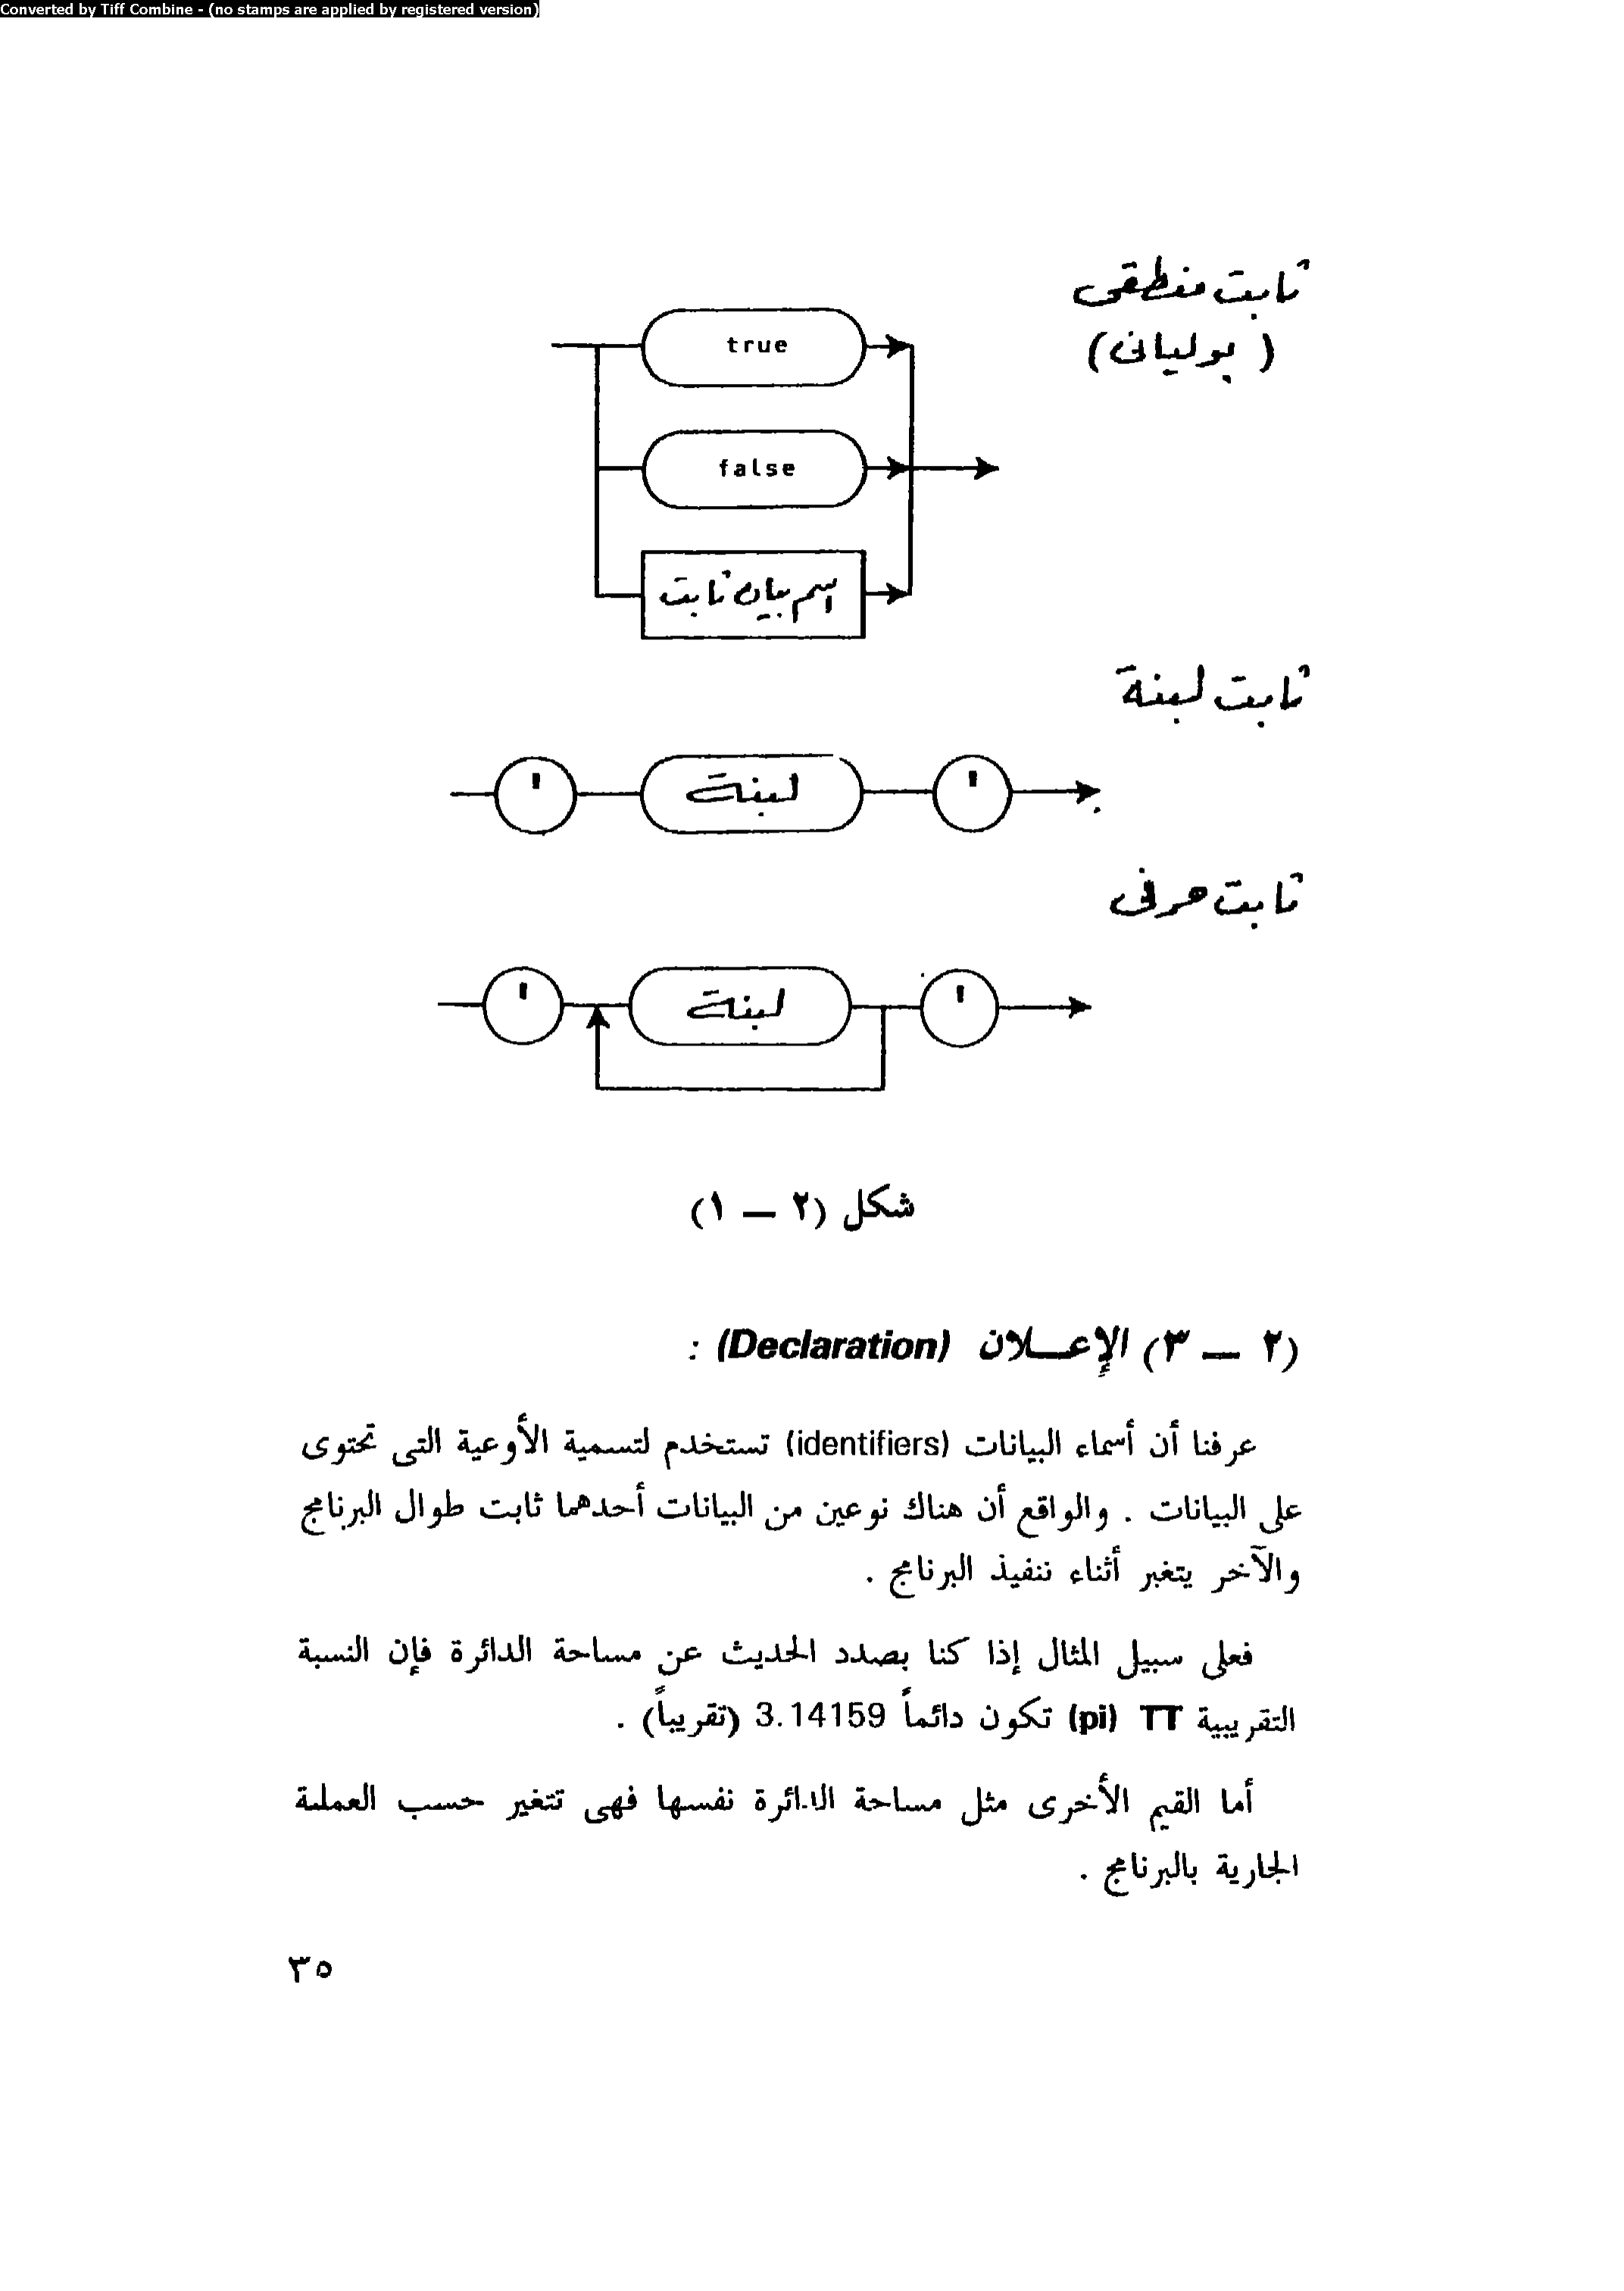 Converted by Tiff Combine - (no stamps are applied by registered version)
ثابت منطقى
( بوليانى )
true
false
اسم بيان ثابت
ثابت لبنة
' لبنة '
ثابت حرفى
' لبنة '
شكل (٢ – ١)
(٢ – ٣) الإعلان (Declaration) :
عرفنا أن أسماء البيانات (identifiers) تستخدم لتسمية الأوعية التى تحتوى
على البيانات . والواقع أن هناك نوعين من البيانات أحدهما ثابت طوال البرنامج
والآخر يتغير أثناء تنفيذ البرنامج .
فعلى سبيل المثال إذا كنا بصدد الحديث عن مساحة الدائرة فإن النسبة
التقريبية TT (pi) تكون دائماً 3.14159 (تقريباً) .
أما القيم الأخرى مثل مساحة الدائرة نفسها فهى تتغير حسب العملية
الجارية بالبرنامج .
٣٥